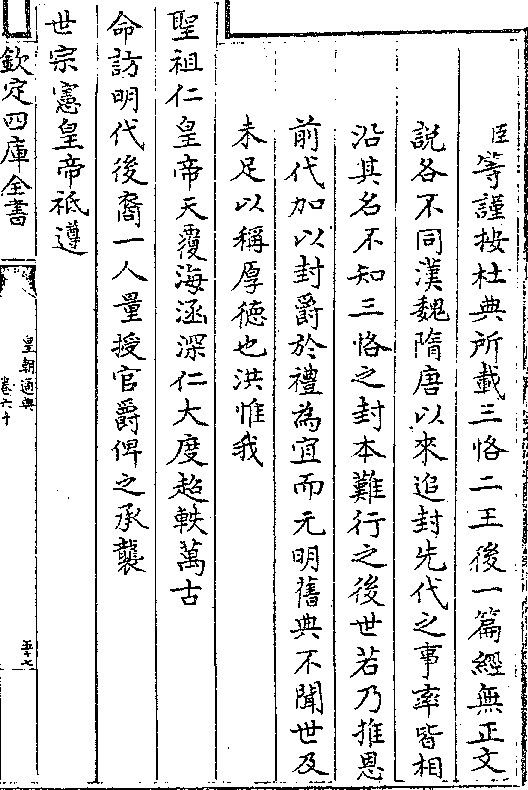 臣等謹按杜典所載三恪二王後一篇經無正文
説各不同漢魏隋唐以來追封先代之事率皆相
沿其名不知三恪之封本難行之後世若乃推恩
前代加以封爵於禮為宜而元明舊典不聞世及
未足以稱厚德也洪惟我
聖祖仁皇帝天覆海涵深仁大度超軼萬古
命訪明代後裔一人量授官爵俾之承襲
世宗憲皇帝祗遵
欽定四庫全書
皇朝通典
卷六十